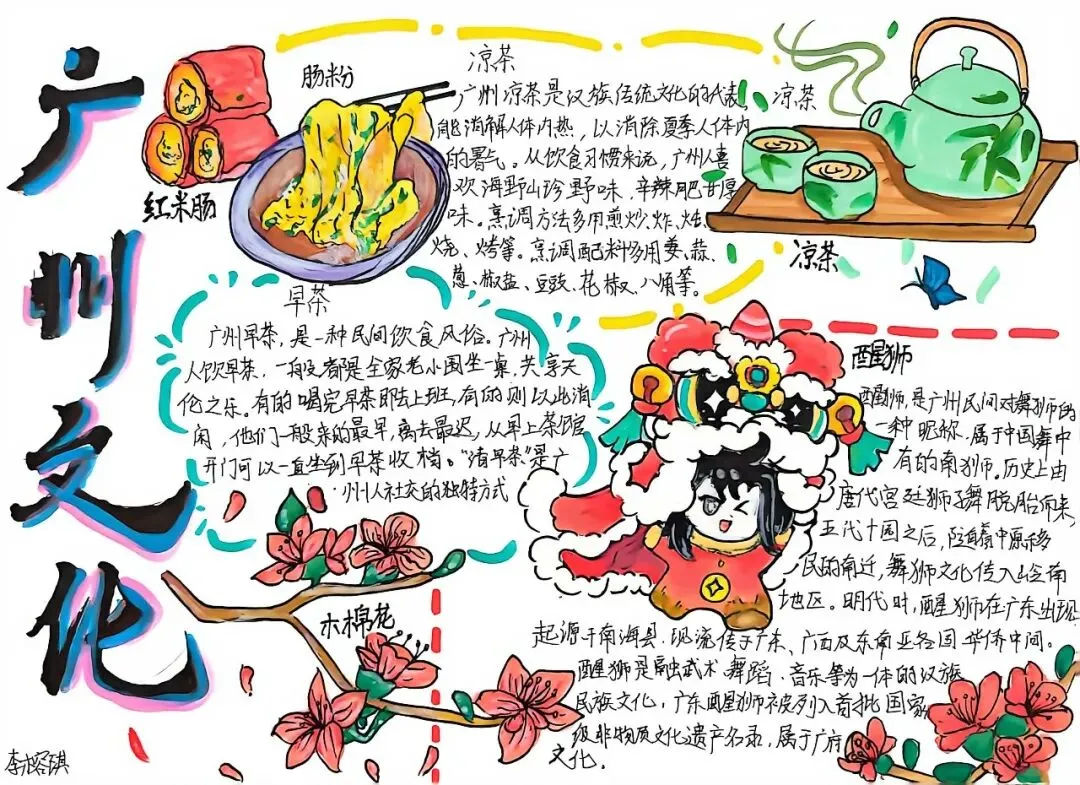 广州文化
肠粉
红米肠
凉茶
广州凉茶是汉族传统文化的代表,
能消解人体内热,以消除夏季人体内
的暑气。从饮食习惯来说,广州人喜
欢海野山珍野味,辛辣肥甘厚
味。烹调方法多用煎炒、炸、炖、
烧、烤等。烹调配料多用姜、蒜、
葱、椒盐、豆豉、花椒、八角等。
凉茶
凉茶
早茶
广州早茶,是一种民间饮食风俗。广州
人饮早茶,一般都是全家老小围坐一桌,共享天
伦之乐。有的喝完早茶即去上班,有的则以此消
闲,他们一般来的最早,离去最迟,从早上茶馆
开门可以一直坐到早茶收档。“请早茶”是广
州人社交的独特方式
木棉花
醒狮
醒狮,是广州民间对舞狮的
一种昵称,属于中国舞中
有的南狮。历史上由
唐代宫廷狮子舞脱胎而来,
五代十国之后,随着中原移
民的南迁,舞狮文化传入岭南
地区。明代时,醒狮在广东出现,
起源于南海县,现流传于广东、广西及东南亚各国华侨中间。
醒狮是融武术、舞蹈、音乐等为一体的汉族
民族文化,广东醒狮被列入首批国家
级非物质文化遗产名录,属于广府
文化。
李 琪